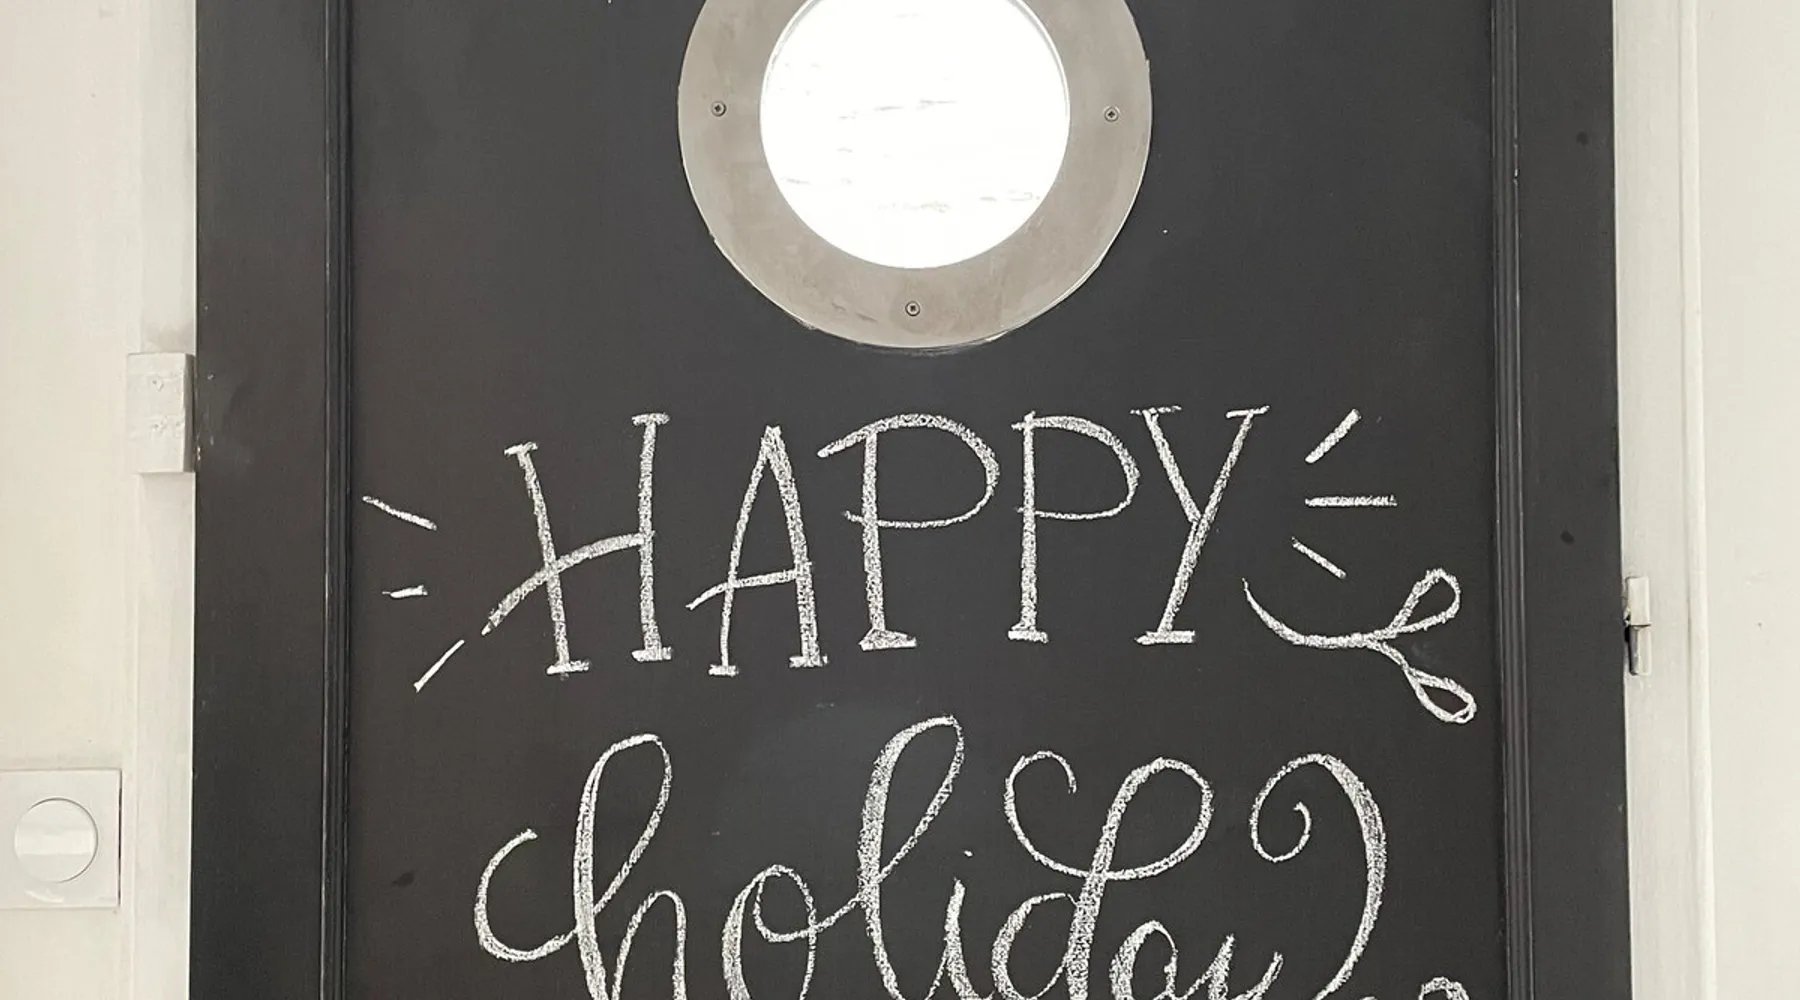 HAPPY
holiday